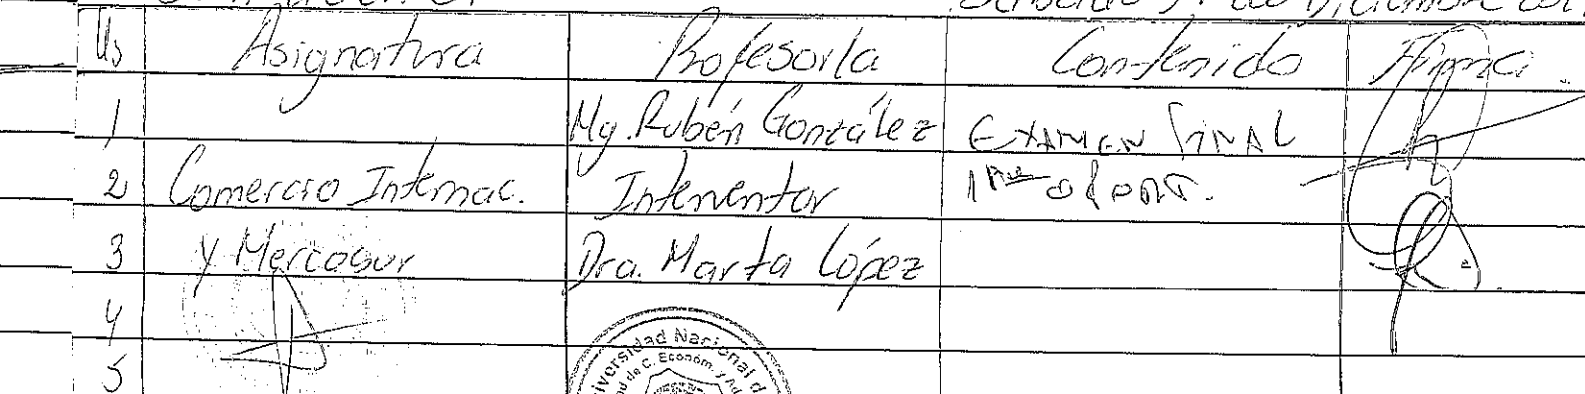 de Diciembre
Hs Asignatura Profesor/a Contenido Firma
1 Mg. Rubén González EXAMEN FINAL
2 Comercio Internac. Interventor 1
3 y Mercosur Dra. Marta López
4
5
Universidad Nacional d
de C. Económ. y Ad